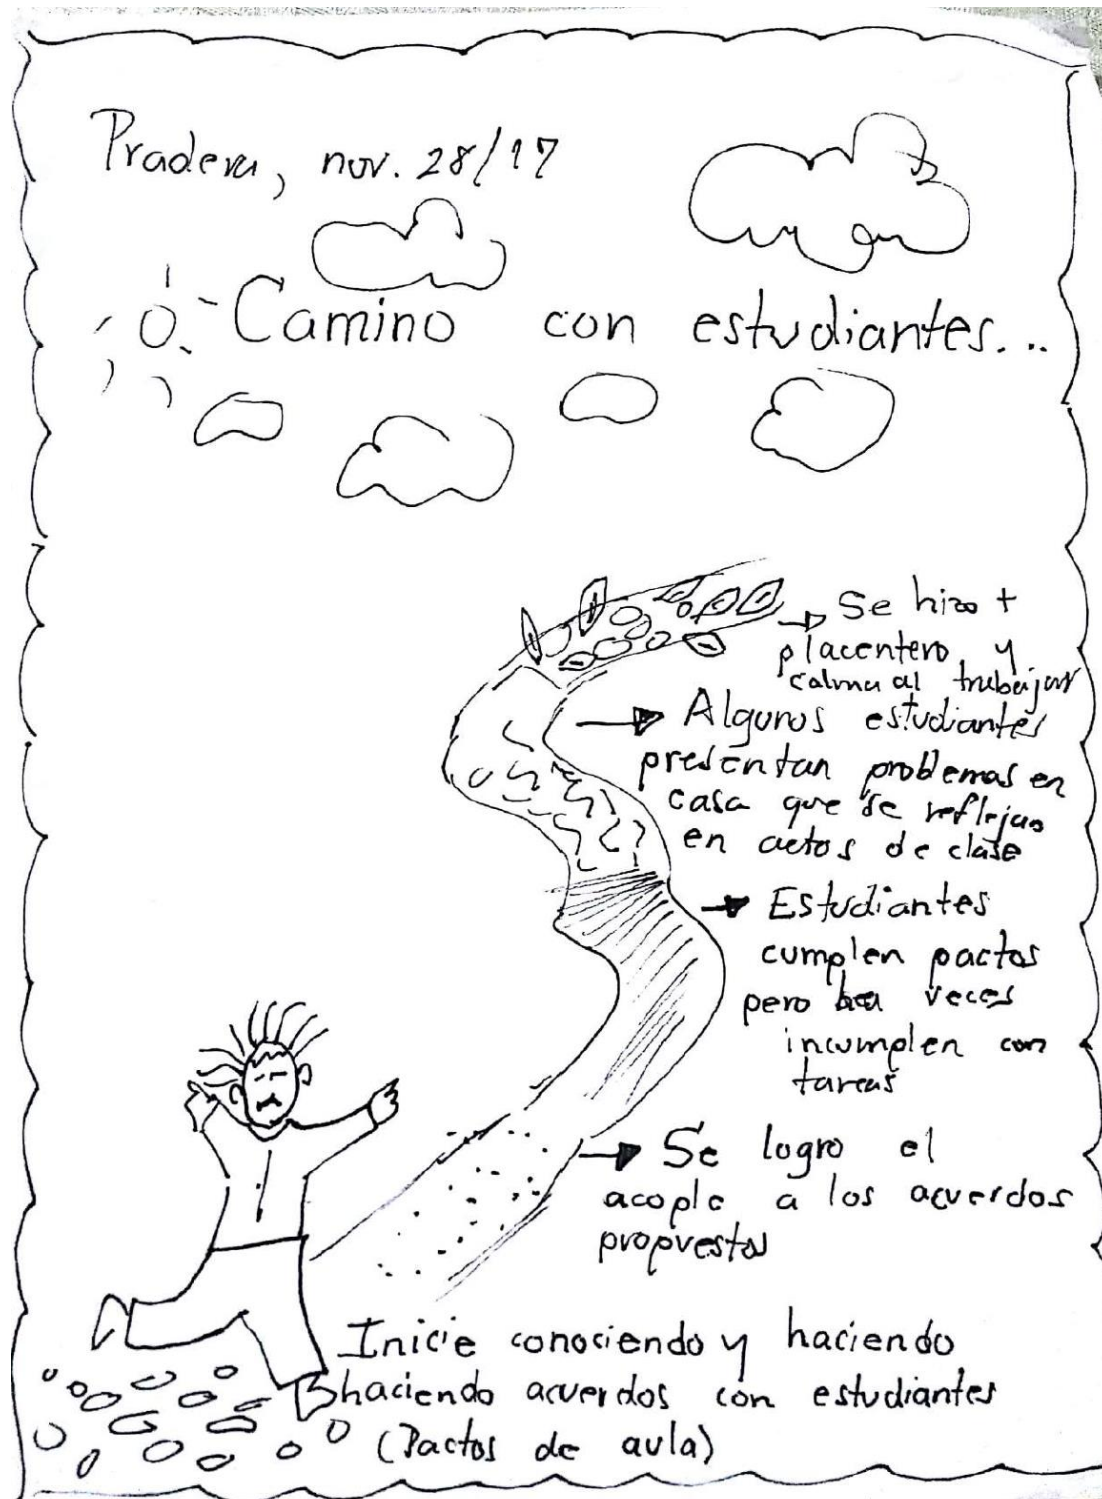 Pradera, nov. 28/17
Camino con estudiantes...
Se hizo +
placentero y
calma al trabajar
Algunos estudiantes
presentan problemas en
casa que se reflejan
en actos de clase
Estudiantes
cumplen pactos
pero a veces
incumplen con
tareas
Se logro el
acople a los acuerdos
propuestos
Inicie conociendo y haciendo
haciendo acuerdos con estudiantes
(Pactos de aula)